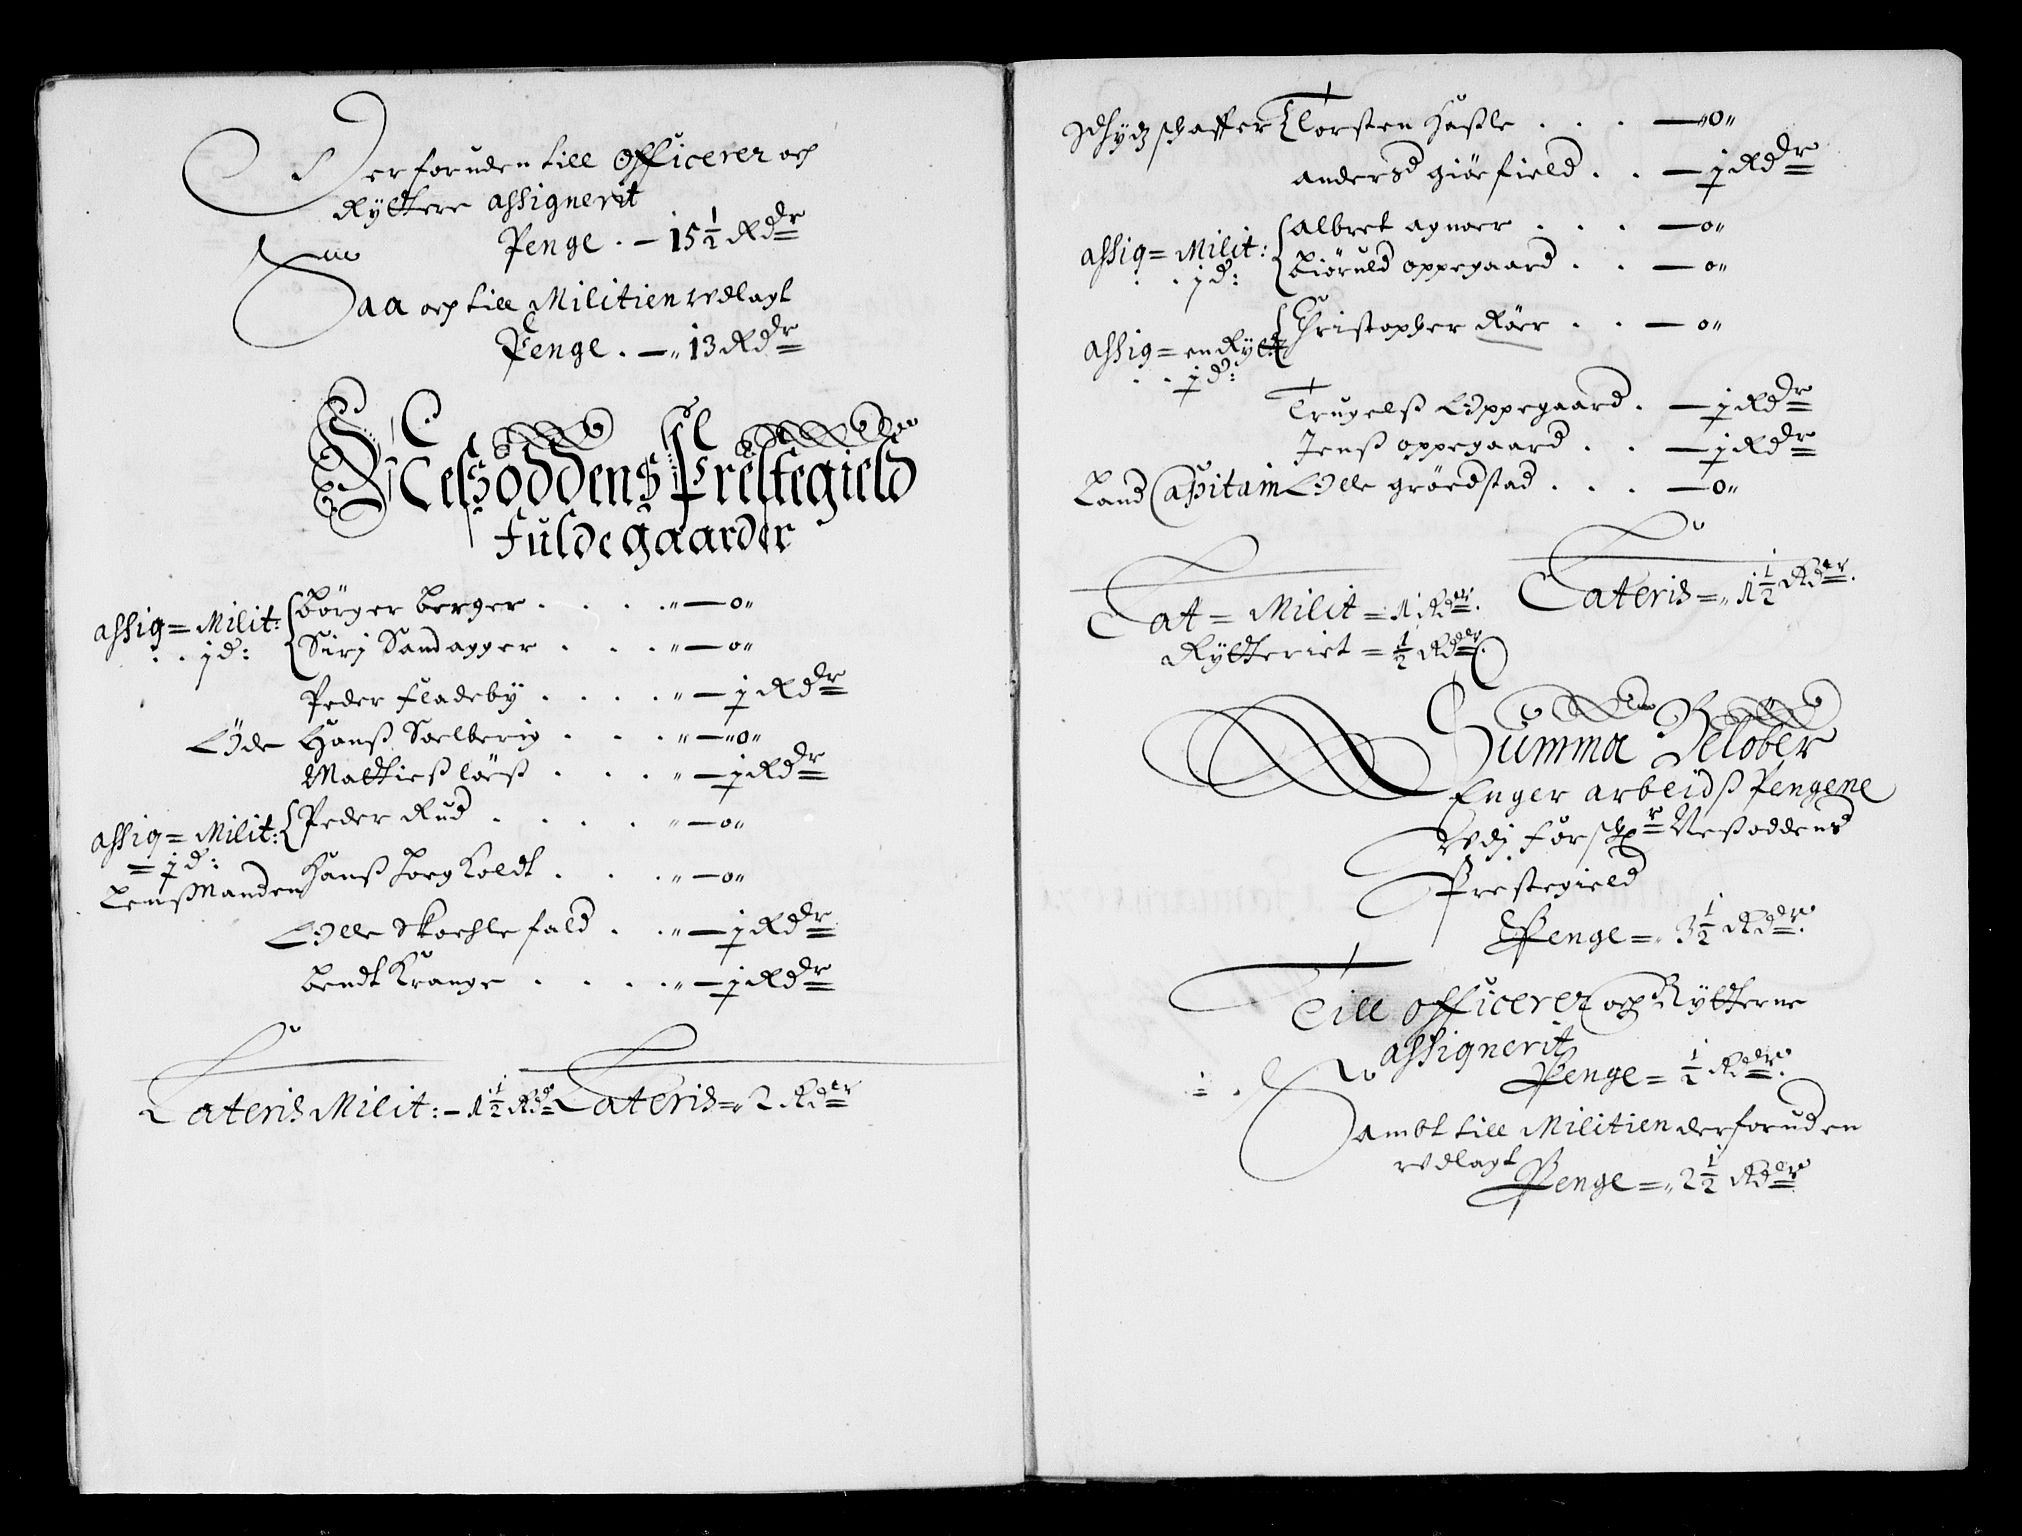 Derforuden till Officerer och
Ryttere assignerit
Penge . — 15 1/2 Rdr
Saa och till Militien vdlagt
Penge . — 13 Rdr
Nesoddens Prestegield
Fulde gaarder
assig= Milit: { Börger Berger . . . . — 0
. . jd: { Sirj Sandagger . . . — 0
Peder Fladeby . . . . — j Rdr
Öde Hanß Soelberig . . . — 0
Mattieß . . . — j Rdr
assig= Milit: { Peder Rud . . . . — 0
= jd:
Lenßmanden Hanß . . . — 0
Olle fald . . — j Rdr
Bendt Krange . . . . — j Rdr
Lateris Milit: — 1 1/2 Rdr Lateris = 2 Rdr
schaffer Torsten Haßle . . . — 0
Anders giöefield . . — j Rdr
assig= Milit: { Albret agnoer . . . — 0
. . jd: { Biöruld oppegaard . . — 0
assig= en Rytt { Christopher Röer . . — 0
. . jd:
Trugelß Oppegaard . — j Rdr
Jenß oppegaard . . — j Rdr
Land Capitain Olle gröedstad . . . — 0
Lateris = 1 1/2 Rdr.
Lat = Milit = 1 Rdr.
Rytteriet = 1/2 Rdr.
Summa Belöber
Enger arbeidß Pengene
vdj Neßoddens
Prestegield
Penge = 3 1/2 Rdr.
Till officerer och Rytterne
assignerit
Penge = 1/2 Rdr.
Sambt till Militien derforuden
vdlagt
Penge = 2 1/2 Rdr